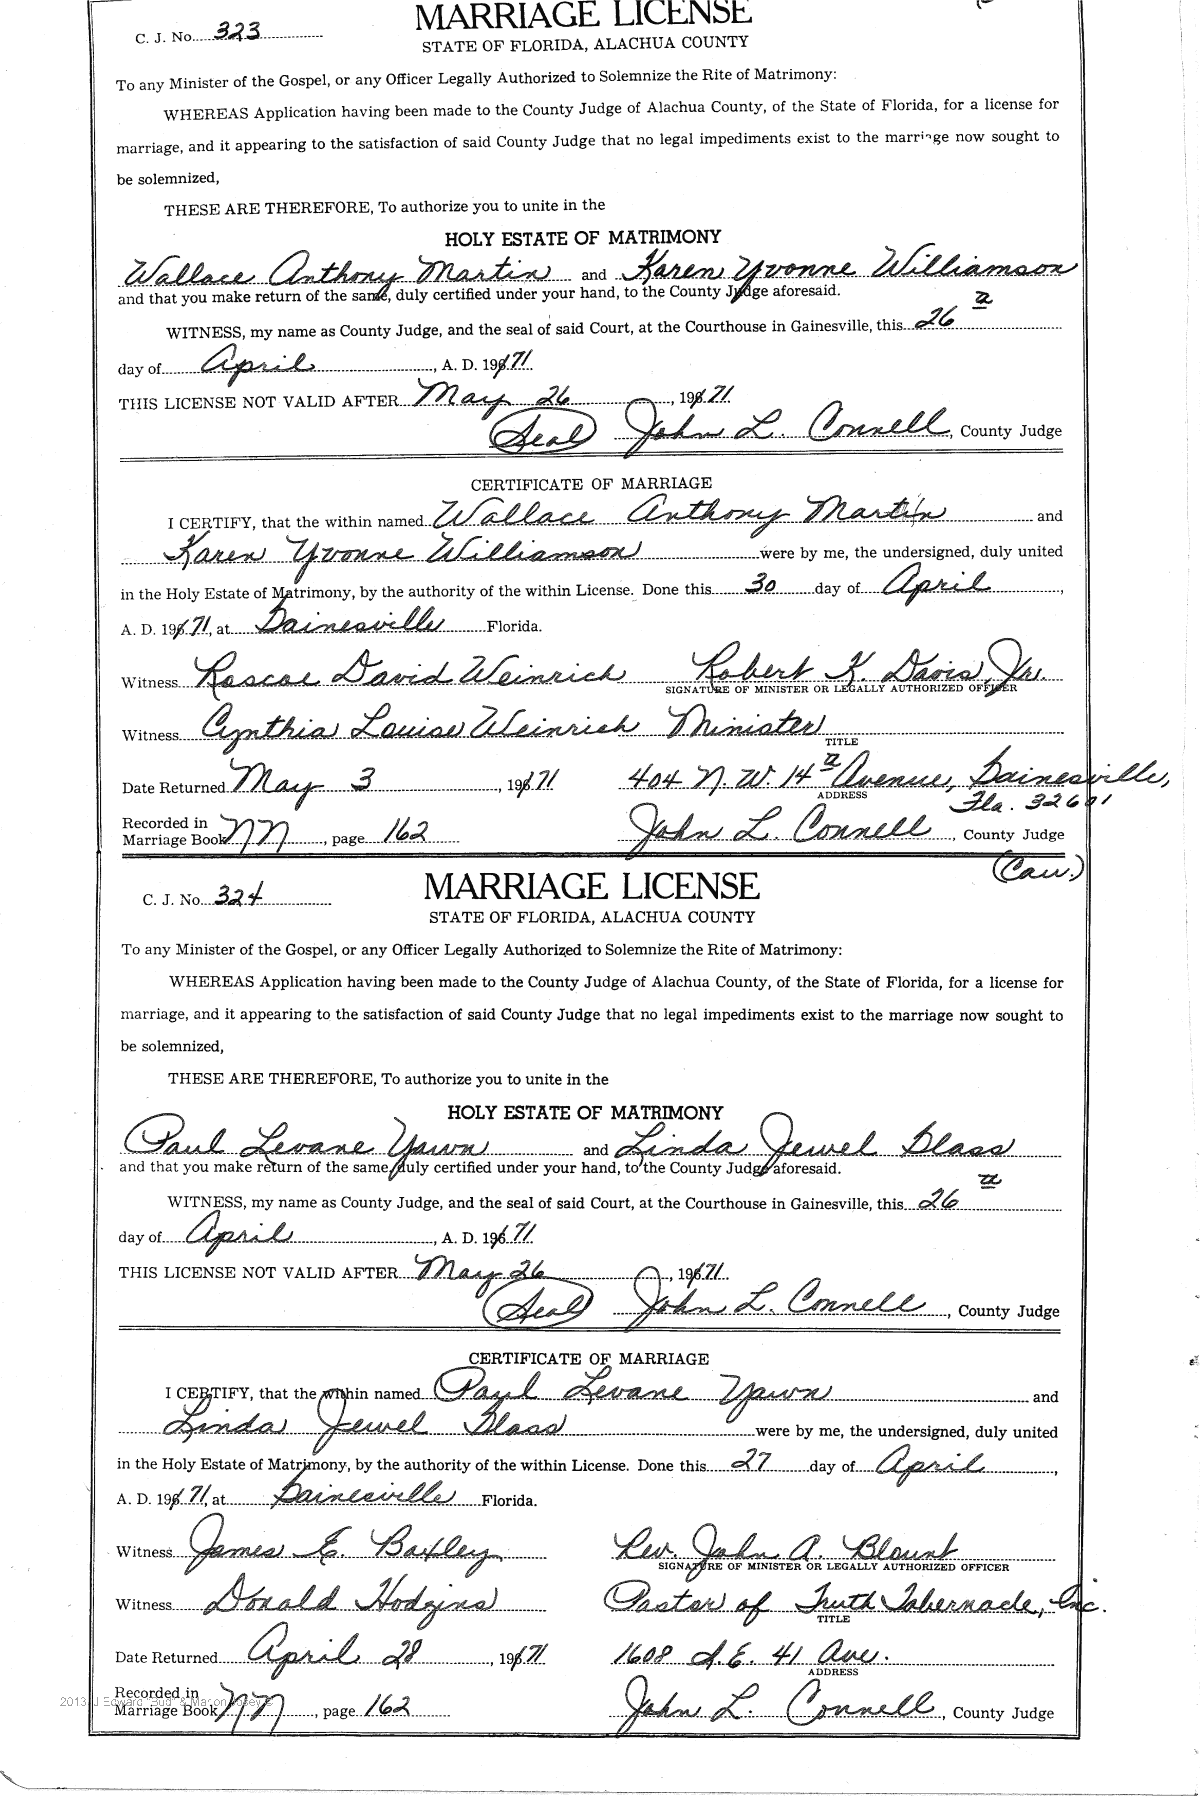 MARRIAGE LICENSE
C. J. No. 323
STATE OF FLORIDA, ALACHUA COUNTY
To any Minister of the Gospel, or any Officer Legally Authorized to Solemnize the Rite of Matrimony:
WHEREAS Application having been made to the County Judge of Alachua County, of the State of Florida, for a license for
marriage, and it appearing to the satisfaction of said County Judge that no legal impediments exist to the marriage now sought to
be solemnized,
THESE ARE THEREFORE, To authorize you to unite in the
HOLY ESTATE OF MATRIMONY
Wallace Anthony Martin and Karen Yvonne Williamson
and that you make return of the same, duly certified under your hand, to the County Judge aforesaid.
WITNESS, my name as County Judge, and the seal of said Court, at the Courthouse in Gainesville, this 26th
day of April, A. D. 1971.
THIS LICENSE NOT VALID AFTER May 26, 1971.
(Seal) John L. Connell, County Judge
CERTIFICATE OF MARRIAGE
I CERTIFY, that the within named Wallace Anthony Martin and
Karen Yvonne Williamson were by me, the undersigned, duly united
in the Holy Estate of Matrimony, by the authority of the within License. Done this 30 day of April,
A. D. 1971, at Gainesville Florida.
Witness Roscoe David Weinrich Robert K. Davis, Jr.
SIGNATURE OF MINISTER OR LEGALLY AUTHORIZED OFFICER
Witness Cynthia Louise Weinrich Minister
TITLE
Date Returned May 3, 1971 404 N. W. 14th Avenue, Gainesville,
ADDRESS Fla. 32601
Recorded in
Marriage Book NN, page 162 John L. Connell, County Judge
(Cau.)
MARRIAGE LICENSE
C. J. No. 324
STATE OF FLORIDA, ALACHUA COUNTY
To any Minister of the Gospel, or any Officer Legally Authorized to Solemnize the Rite of Matrimony:
WHEREAS Application having been made to the County Judge of Alachua County, of the State of Florida, for a license for
marriage, and it appearing to the satisfaction of said County Judge that no legal impediments exist to the marriage now sought to
be solemnized,
THESE ARE THEREFORE, To authorize you to unite in the
HOLY ESTATE OF MATRIMONY
Paul Levane Yawn and Linda Jewel Glass
and that you make return of the same, duly certified under your hand, to the County Judge aforesaid.
WITNESS, my name as County Judge, and the seal of said Court, at the Courthouse in Gainesville, this 26th
day of April, A. D. 1971.
THIS LICENSE NOT VALID AFTER May 26, 1971.
(Seal) John L. Connell, County Judge
CERTIFICATE OF MARRIAGE
I CERTIFY, that the within named Paul Levane Yawn and
Linda Jewel Glass were by me, the undersigned, duly united
in the Holy Estate of Matrimony, by the authority of the within License. Done this 27 day of April,
A. D. 1971, at Gainesville Florida.
Witness James E. Baxley Rev. John A. Blount
SIGNATURE OF MINISTER OR LEGALLY AUTHORIZED OFFICER
Witness Donald Hodgins Pastor of Truth Tabernacle, Inc.
TITLE
Date Returned April 28, 1971 1608 S.E. 41 Ave.
ADDRESS
Recorded in
Marriage Book NN, page 162 John L. Connell, County Judge